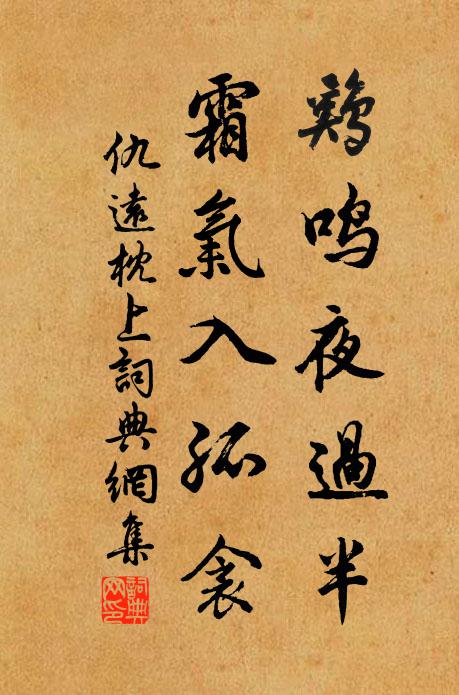 鷄鳴夜過半
霜氣入孤衾
仇遠枕上詞典網集
詞典網印